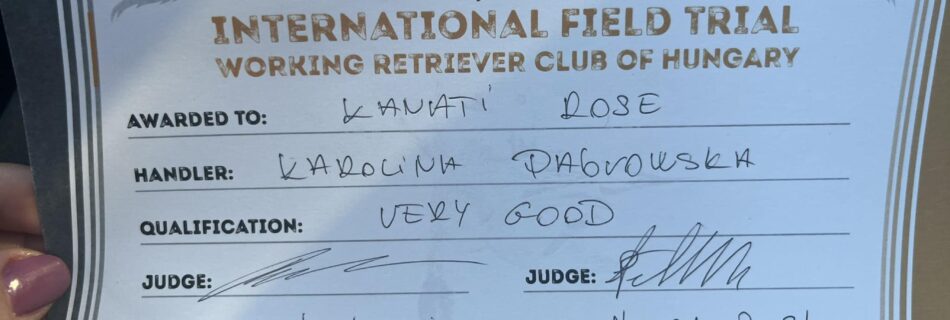 INTERNATIONAL FIELD TRIAL
WORKING RETRIEVER CLUB OF HUNGARY
AWARDED TO: KANATI ROSE
HANDLER: KAROLINA DĄBROWSKA
QUALIFICATION: VERY GOOD
JUDGE: JUDGE: